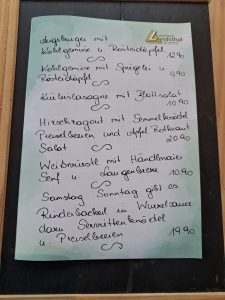 Augsburger mit
Kohlgemüse u. Röstedäpfel
12.90
Kohlgemüse mit Spiegelei u.
Rösterdäpfel
9.90
Kürbislasagne mit Blattsalat
10.90
Hirschragout mit Semmelknödel
Preiselbeeren und Apfel Rotkraut
Salat
20.90
Weißwürstl mit Händlmaier
Senf u. Laugenbreze
10.90
Samstag Sonntag gibt es
Rinderbackerl in Wurzelsauce
dazu Serviettenknödel
u. Preiselbeeren
19.90